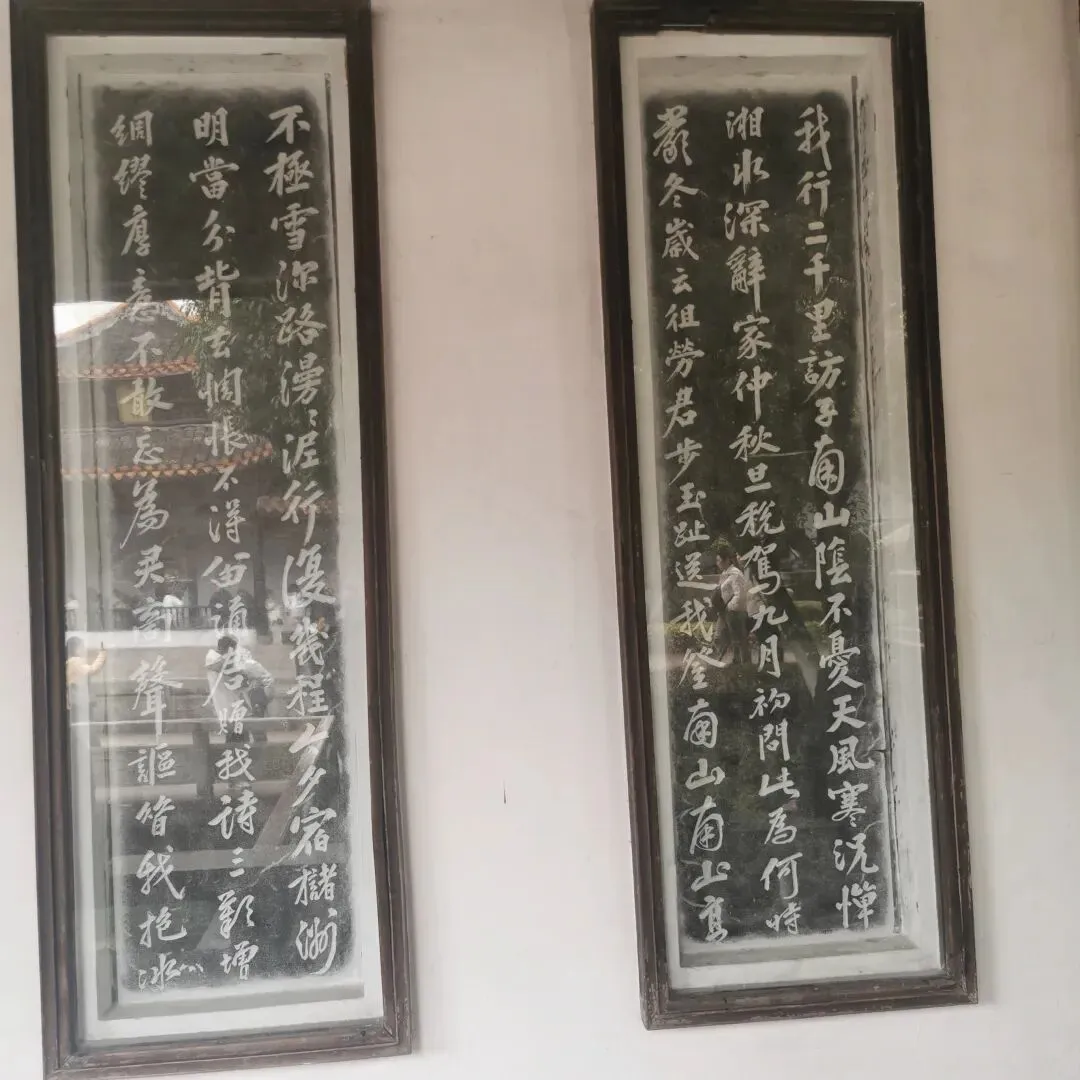 我行二千里訪子南山陰不憂天風寒況憚
湘水深辭家仲秋旦稅駕九月初問此為何時
嚴冬歲云徂勞君步玉趾送我登南山南山高
不極雪深路漫〻泥行復幾程今夕宿櫧洲
明當分背去惆悵不得留誦君贈我詩三歎增
綢繆厚意不敢忘為君商聲謳昔我抱冰